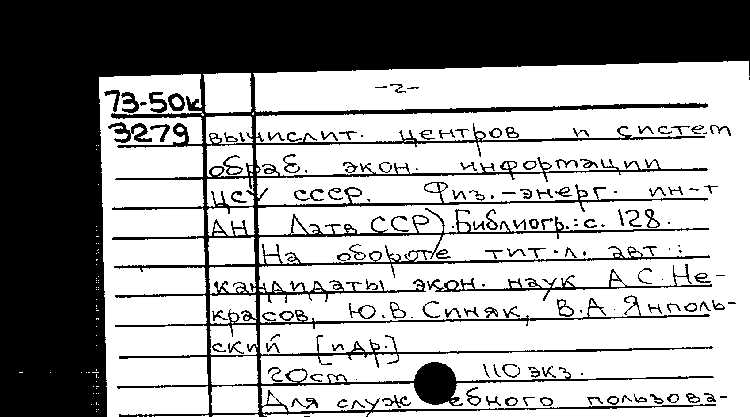 -2-
73-50к
3279 вычислит. центров и систем
обраб. экон. информации
ЦСУ СССР. Физ.-энерг. ин-т
АН Латв ССР). Библиогр.: с. 128.
На обороте тит. л. авт.:
кандидаты экон. наук А.С. Не-
красов, Ю.В. Синяк, В.А. Янполь-
ский [и др.]
20 ст. 110 экз.
Для служебного пользова-